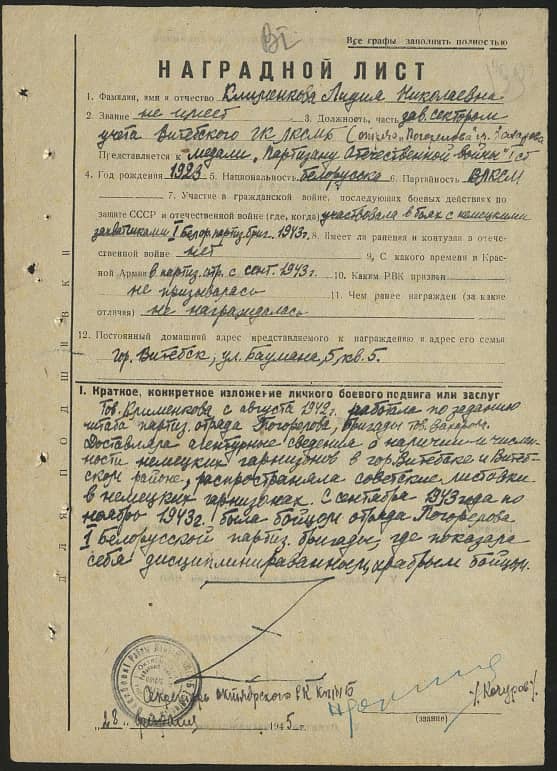 ВЛ
Все графы заполнять полностью
НАГРАДНОЙ ЛИСТ
1. Фамилия, имя и отчество Клименкова Лидия Николаевна
2. Звание не имеет 3. Должность, часть зав. сектором
учета Витебского ГК ЛКСМБ (отряд "Погорелова" бр. Захарова
Представляется к медали "Партизану Отечественной войны" I ст
4. Год рождения 1923 5. Национальность белорусска 6. Партийность ВЛКСМ
7. Участие в гражданской войне, последующих боевых действиях по
защите СССР и отечественной войне (где, когда) участвовала в боях с немецкими
захватчиками I Белор. партиз. бриг. 1943г. 8. Имеет ли ранения и контузии в отече-
ственной войне нет 9. С какого времени в Крас-
ной Армии в партиз. отр. с сент. 1943г. 10. Каким РВК призван
не призывалась 11. Чем ранее награжден (за какие
отличия) не награждалась
12. Постоянный домашний адрес представляемого к награждению и адрес его семьи
гор. Витебск, ул. Баумана, 5, кв. 5.
I. Краткое, конкретное изложение личного боевого подвига или заслуг
Тов. Клименкова с августа 1942г. работала по заданию
штаба партиз. отряда Погорелова, бригады тов. Захарова.
Доставляла агентурные сведения о наличии и числен-
ности немецких гарнизонов в гор. Витебске и Витеб-
ском районе, распространяла советские листовки
в немецких гарнизонах. С сентября 1943 года по
ноябрь 1943г. была бойцом отряда Погорелова
I Белорусской партиз. бригады, где показала
себя дисциплинированным, храбрым бойцом.
Секретарь Октябрьского РК КП(б)Б
/. Качуров./
"28" февраля 1945 г.
(звание)
ДЛЯ ПОДШИВКИ